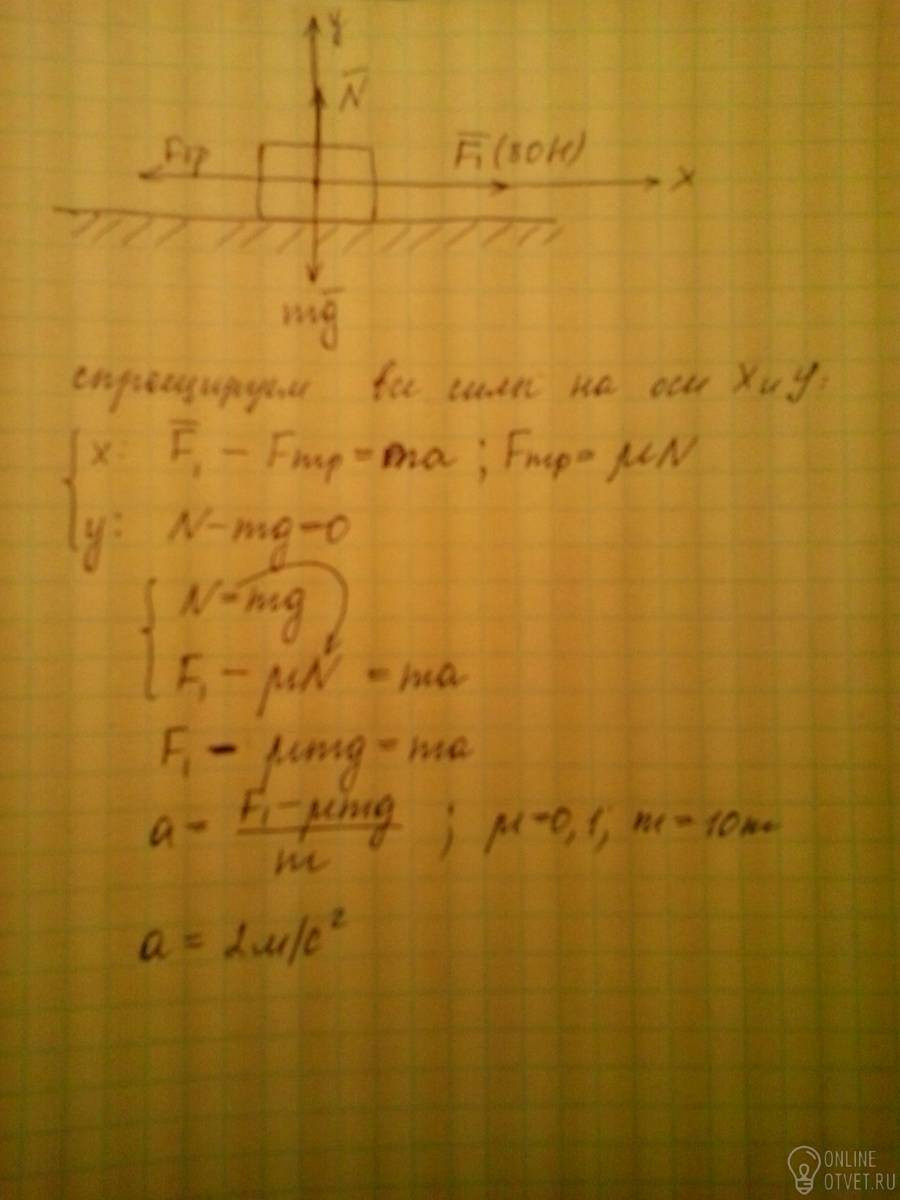 y
N̅
Fтр
F̅₁ (30H)
x
mg̅
спроецируем все силы на оси X и Y:
x: F̅₁ - Fтр = ma ; Fтр = μN
y: N - mg = 0
N = mg
F₁ - μN = ma
F₁ - μmg = ma
a = (F₁ - μmg)/m ; μ = 0,1; m = 10
a = 2 м/с²
ONLINE
OTVET.RU